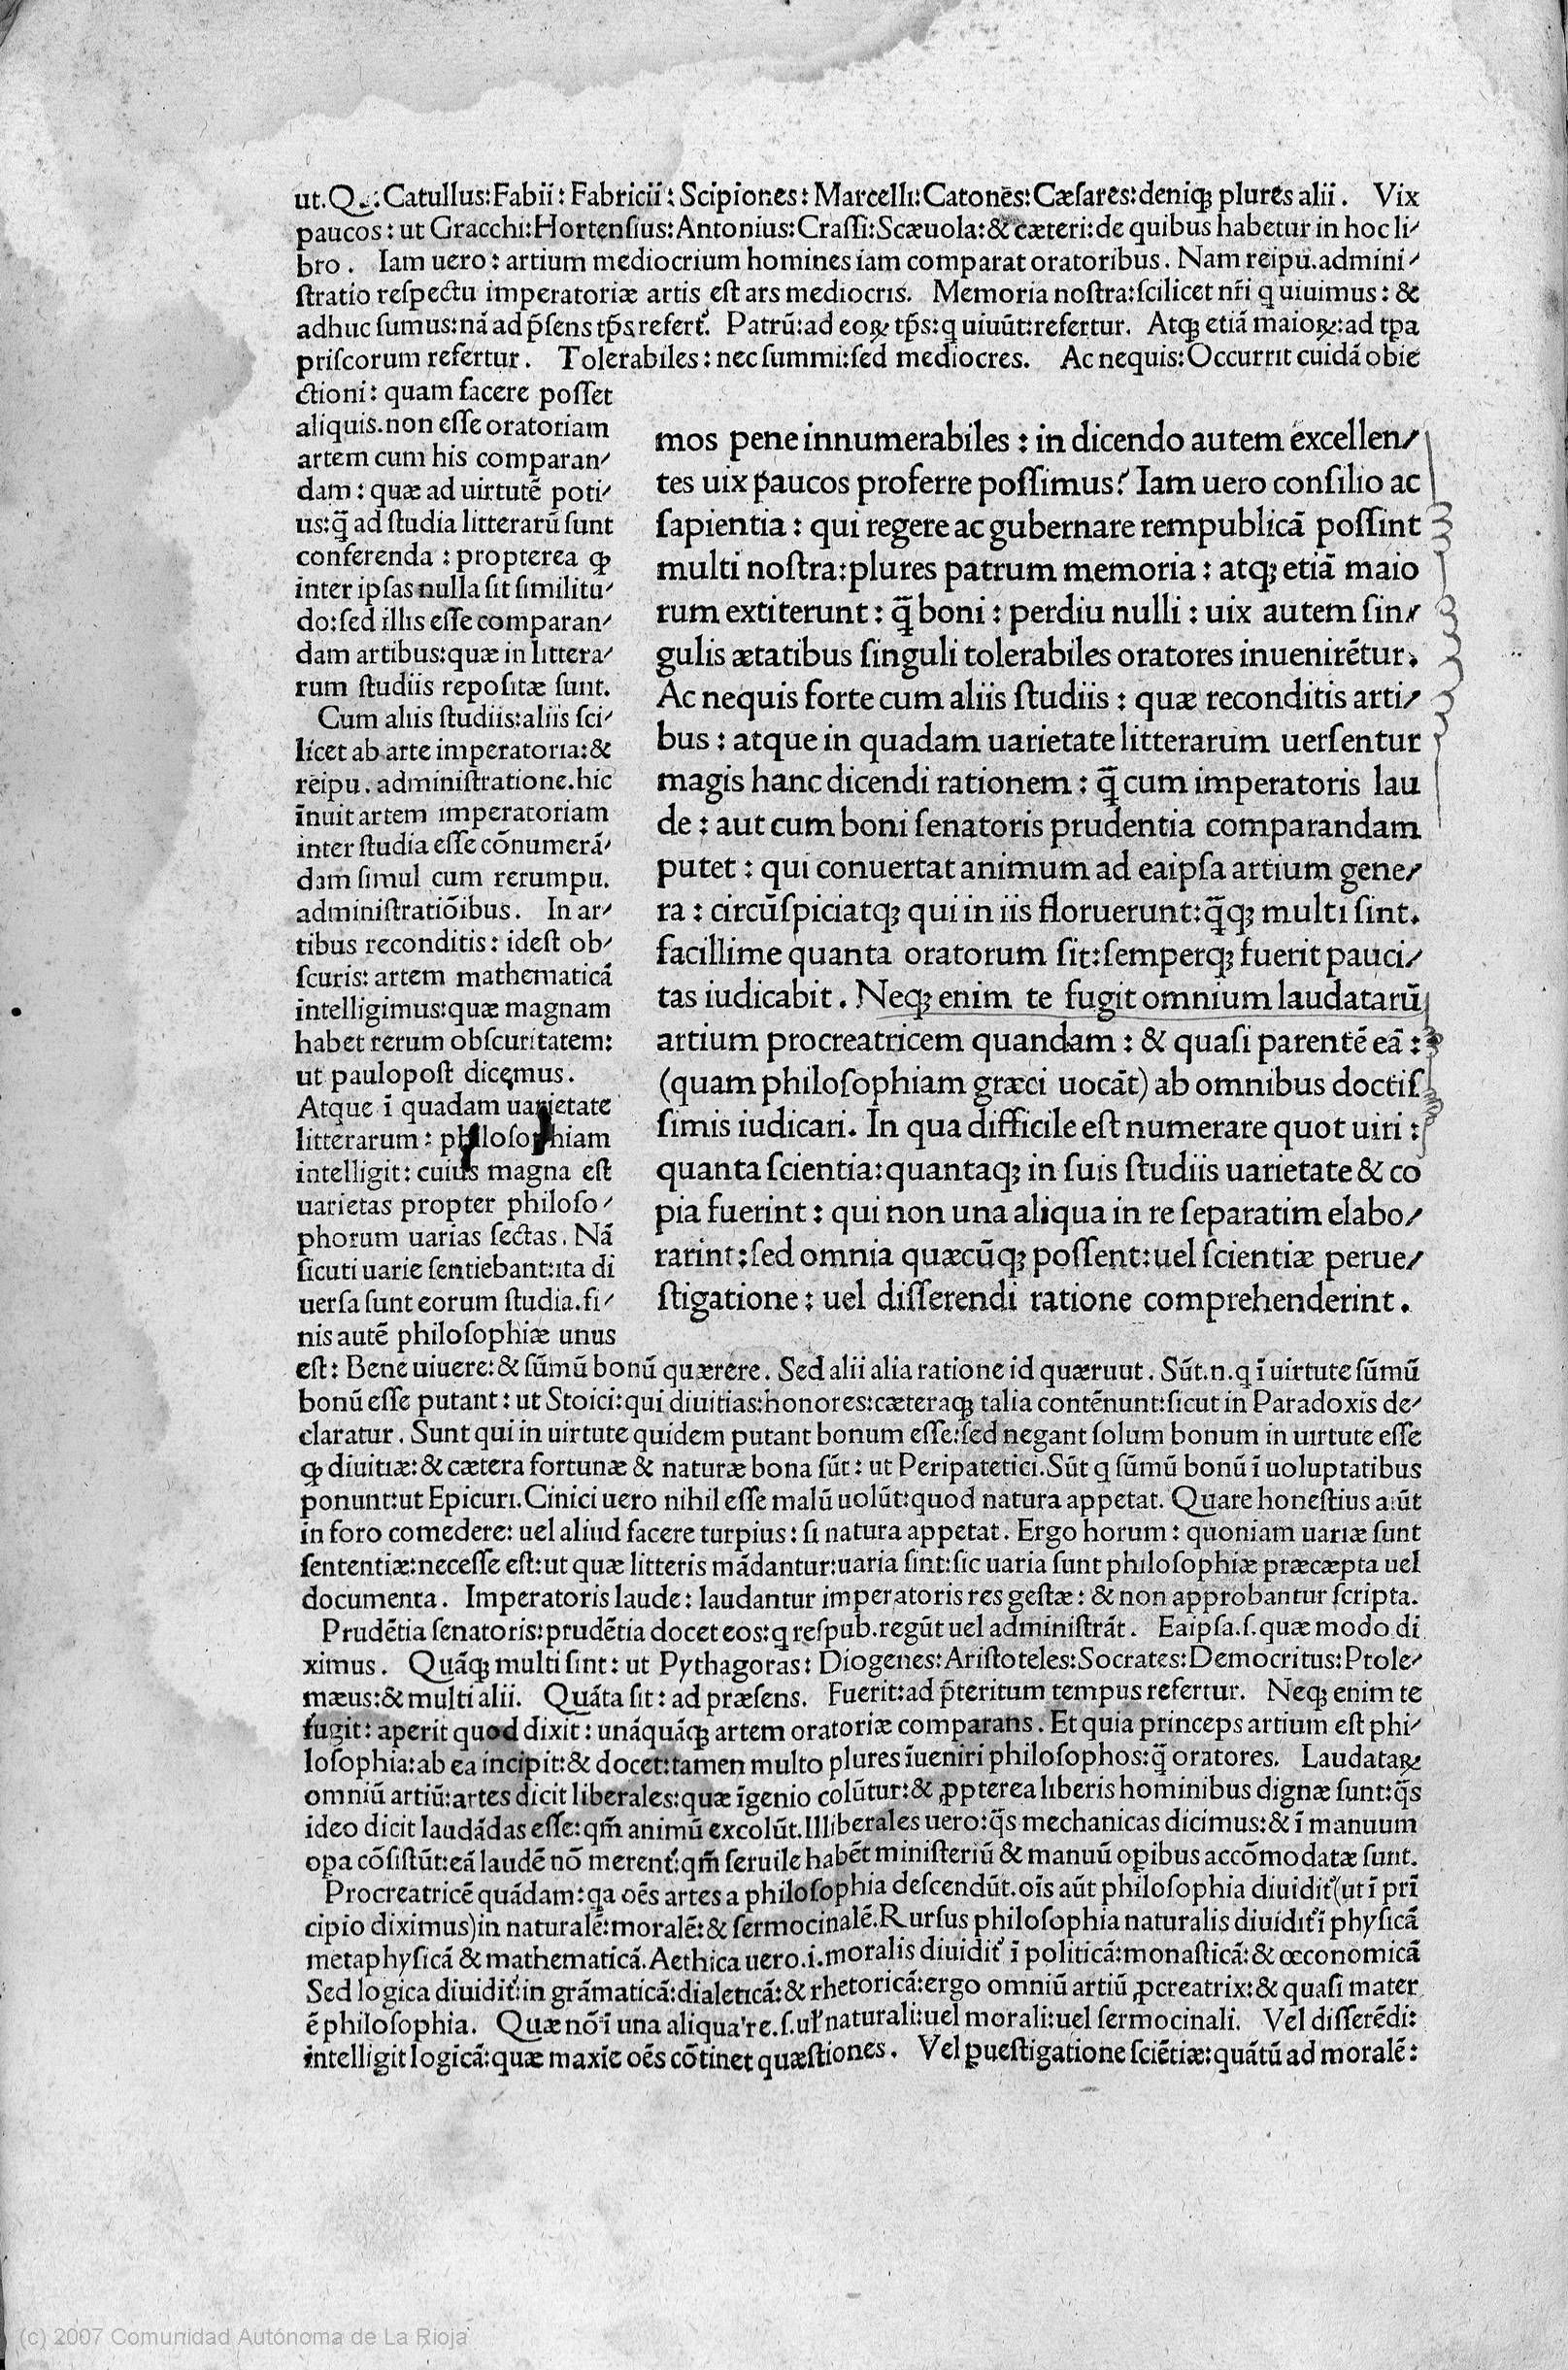 ut.Q.:Catullus:Fabii:Fabricii:Scipiones:Marcelli:Catonēs:Cæsares:deniqꝫ plures alii. Vix
paucos:ut Gracchi:Hortensius:Antonius:Crassi:Scæuola:&cæteri:de quibus habetur in hoc li⸗
bro. Iam uero:artium mediocrium homines iam comparat oratoribus. Nam reipu.admini⸗
stratio respectu imperatoriæ artis est ars mediocris. Memoria nostra:scilicet nr̄i q uiuimus:&
adhuc sumus:nā ad p̄sens tp̄s refert᷒. Patrū:ad eoꝝ tp̄s:q uiuūt:refertur. Atqꝫ etiā maioꝝ:ad tꝑa
priscorum refertur. Tolerabiles:nec summi:sed mediocres. Ac nequis:Occurrit cuidā obie
ctioni:quam facere posset
aliquis.non esse oratoriam
artem cum his comparan⸗
dam:quæ ad uirtutē poti⸗
us:q̄ ad studia litterarū sunt
conferenda:propterea ꝙ
inter ipsas nulla sit similitu⸗
do:sed illis esse comparan⸗
dam artibus:quæ in littera⸗
rum studiis repositæ sunt.
Cum aliis studiis:aliis sci⸗
licet ab arte imperatoria:&
reipu.administratione.hic
īnuit artem imperatoriam
inter studia esse cōnumerā⸗
dam simul cum rerumpu.
administratiōibus. In ar⸗
tibus reconditis:idest ob⸗
scuris:artem mathematicā
intelligimus:quæ magnam
habet rerum obscuritatem:
ut paulopost dicemus.
Atque ī quadam uarietate
litterarum:philosophiam
intelligit:cuius magna est
uarietas propter philoso⸗
phorum uarias sectas. Nā
sicuti uarie sentiebant:ita di
uersa sunt eorum studia.fi⸗
nis autē philosophiæ unus
mos pene innumerabiles:in dicendo autem excellen⸗
tes uix paucos proferre possimus? Iam uero consilio ac
sapientia:qui regere ac gubernare rempublicā possint
multi nostra:plures patrum memoria:atqꝫ etiā maio
rum extiterunt:q̄ boni:perdiu nulli:uix autem sin⸗
gulis ætatibus singuli tolerabiles oratores inuenirētur.
Ac nequis forte cum aliis studiis:quæ reconditis arti⸗
bus:atque in quadam uarietate litterarum uersentur
magis hanc dicendi rationem:q̄ cum imperatoris lau
de:aut cum boni senatoris prudentia comparandam
putet:qui conuertat animum ad eaipsa artium gene⸗
ra:circūspiciatqꝫ qui in iis floruerunt:q̄qꝫ multi sint.
facillime quanta oratorum sit:semperqꝫ fuerit pauci⸗
tas iudicabit. Neqꝫ enim te fugit omnium laudatarū
artium procreatricem quandam:& quasi parentē eā:
(quam philosophiam græci uocāt) ab omnibus doctis
simis iudicari. In qua difficile est numerare quot uiri:
quanta scientia:quantaqꝫ in suis studiis uarietate & co
pia fuerint:qui non una aliqua in re separatim elabo⸗
rarint:sed omnia quæcūqꝫ possent:uel scientiæ perue⸗
stigatione:uel disserendi ratione comprehenderint.
est:Bene uiuere:& sūmū bonū quærere. Sed alii alia ratione id quæruut. Sūt.n.q ī uirtute sūmū
bonū esse putant:ut Stoici:qui diuitias:honores:cæteraqꝫ talia contēnunt:sicut in Paradoxis de⸗
claratur. Sunt qui in uirtute quidem putant bonum esse:sed negant solum bonum in uirtute esse
ꝙ diuitiæ:& cætera fortunæ & naturæ bona sūt:ut Peripatetici.Sūt q sūmū bonū ī uoluptatibus
ponunt:ut Epicuri.Cinici uero nihil esse malū uolūt:quod natura appetat. Quare honestius aiūt
in foro comedere:uel aliud facere turpius:si natura appetat. Ergo horum:quoniam uariæ sunt
sententiæ:necesse est:ut quæ litteris mādantur:uaria sint:sic uaria sunt philosophiæ præcæpta uel
documenta. Imperatoris laude:laudantur imperatoris res gestæ:& non approbantur scripta.
Prudētia senatoris:prudētia docet eos:q respub.regūt uel administrāt. Eaipsa.s.quæ modo di
ximus. Quāqꝫ multi sint:ut Pythagoras:Diogenes:Aristoteles:Socrates:Democritus:Ptole⸗
mæus:& multi alii. Quāta sit:ad præsens. Fuerit:ad p̄teritum tempus refertur. Neqꝫ enim te
fugit:aperit quod dixit:unāquāqꝫ artem oratoriæ comparans. Et quia princeps artium est phi⸗
losophia:ab ea incipit:& docet:tamen multo plures īueniri philosophos:q̄ oratores. Laudataꝝ
omniū artiū:artes dicit liberales:quæ īgenio colūtur:& ꝓpterea liberis hominibus dignæ sunt:q̄s
ideo dicit laudādas esse:qm̄ animū excolūt.Illiberales uero:q̄s mechanicas dicimus:& ī manuum
opa cōsistūt:eā laudē nō merent᷒:qm̄ seruile habēt ministeriū & manuū oꝑibus accōmodatæ sunt.
Procreatricē quādam:qa oēs artes a philosophia descendūt.oīs aūt philosophia diuidit᷒(ut ī pri̅
cipio diximus)in naturalē:moralē:& sermocinalē.Rursus philosophia naturalis diuidit᷒ ī physicā
metaphysicā & mathematicā.Aethica uero.i.moralis diuidit᷒ ī politicā:monasticā:& œconomicā
Sed logica diuidit᷒:in grāmaticā:dialeticā:& rhetoricā:ergo omniū artiū ꝓcreatrix:& quasi mater
ē philosophia. Quæ nō ī una aliqua re.s.ul̉ naturali:uel morali:uel sermocinali. Vel disserēdi:
intelligit logicā:quæ maxīe oēs cōtinet quæstiones. Vel ꝑuestigatione sciētiæ:quātū ad moralē:
(c) 2007 Comunidad Autónoma de La Rioja